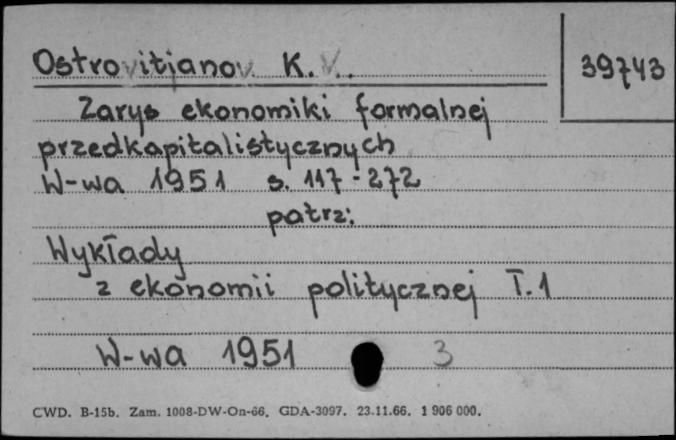 Ostrovitjanov K. V.
39743
Zarys ekonomiki formalnej
przedkapitalistycznych
W-wa 1951 s. 117-272
patrz:
Wykłady
z ekonomii politycznej T.1
W-wa 1951 3
CWD. B-15b. Zam. 1008-DW-On-66. GDA-3097. 23.11.66. 1 906 000.